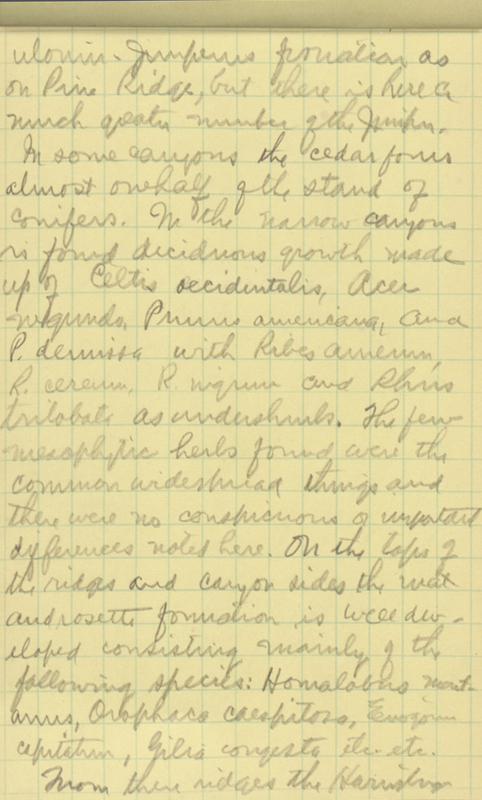 ulorum - Juniperus formation as
on Pine Ridge, but there is here a
much greater number of the Junipers.
In some canyons the cedar forms
almost one half of the stand of
conifers. In the narrow canyons
is found deciduous growth made
up of Celtis occidentalis, Acer
negundo, Prunus americana, and
P. demissa with Ribes aureum,
R. cereum, R. nigrum and Rhus
trilobata as undershrubs. The few
mesophytic herbs found were the
common widespread things and
there were no conspicuous or important
differences noted here. On the tops of
the ridges and canyon sides the mat
and rosette formation is well dev-
eloped consisting mainly of the
following species: Homalobus mont-
anus, Orophaca caespitosa,
capitatum, Gilia congesta etc. etc.
From these ridges the